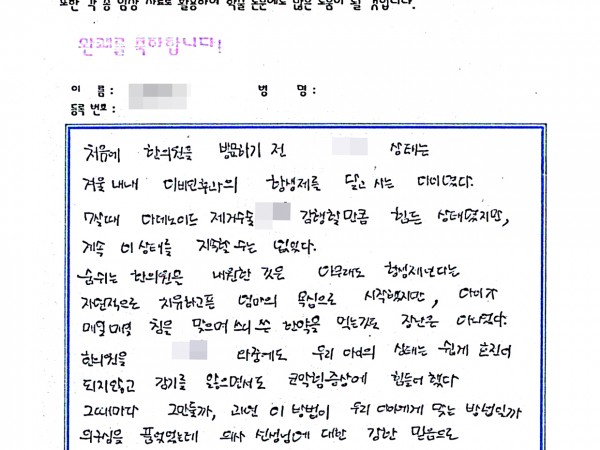 또한 각종 임상 자료로 활용하여 학술 논문에도 많은 도움이 될 것입니다.
완쾌를 축하합니다!
이 름 : 병 명 :
등록 번호 :
처음에 한의원을 방문하기 전 상태는
겨울내내 이비인후과의 항생제를 달고 사는 아이였다.
7살때 아데노이드 제거수술 감행할만큼 힘든 상태였지만,
계속 이 상태를 지속할 수는 없었다.
숨쉬는 한의원을 내원한 것은 아무래도 항생제보다는
자연적으로 치유하고픈 엄마의 욕심으로 시작했지만, 아이가
매일매일 침을 맞으며 쓰디 쓴 한약을 먹는것도 장난은 아니었다.
한의원을 다중에도 우리 아이의 상태는 쉽게 호전이
되지않고 감기를 앓으면서도 코막힘증상에 힘들어 했다
그때마다 그만둘까, 과연 이 방법이 우리 아이에게 맞는 방법인가
의구심을 품었었는데 의사 선생님에 대한 강한 믿음으로